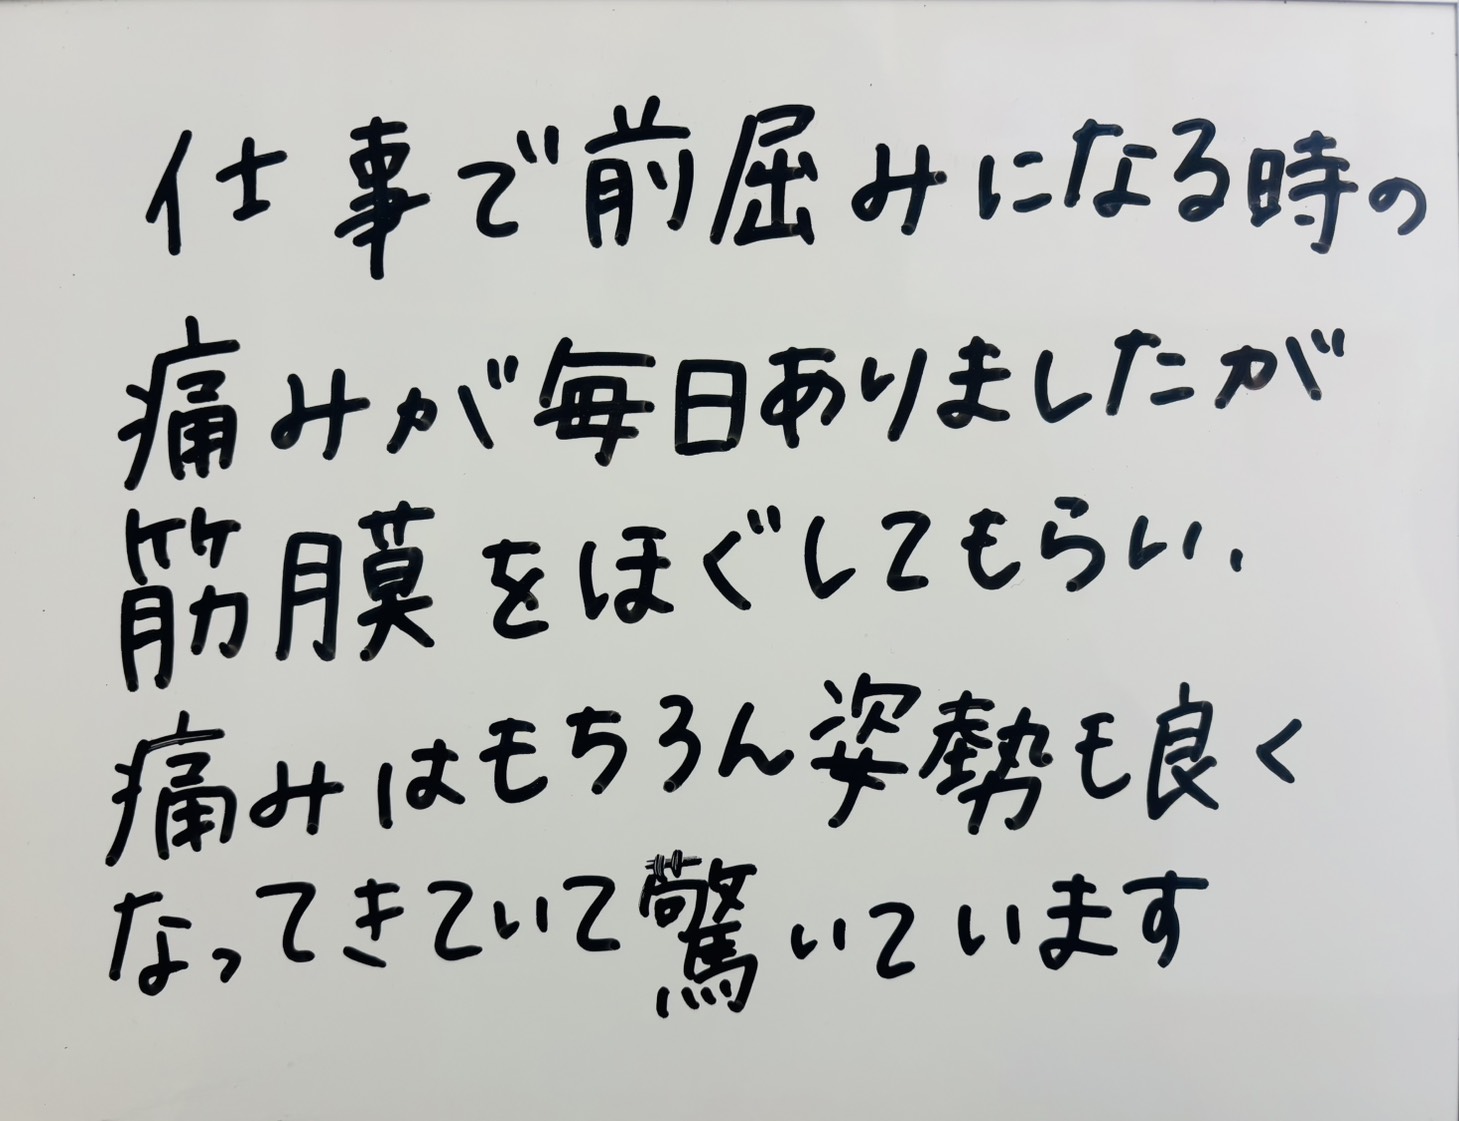 仕事で前屈みになる時の
痛みが毎日ありましたが
筋膜をほぐしてもらい、
痛みはもちろん姿勢も良く
なってきていて驚いています